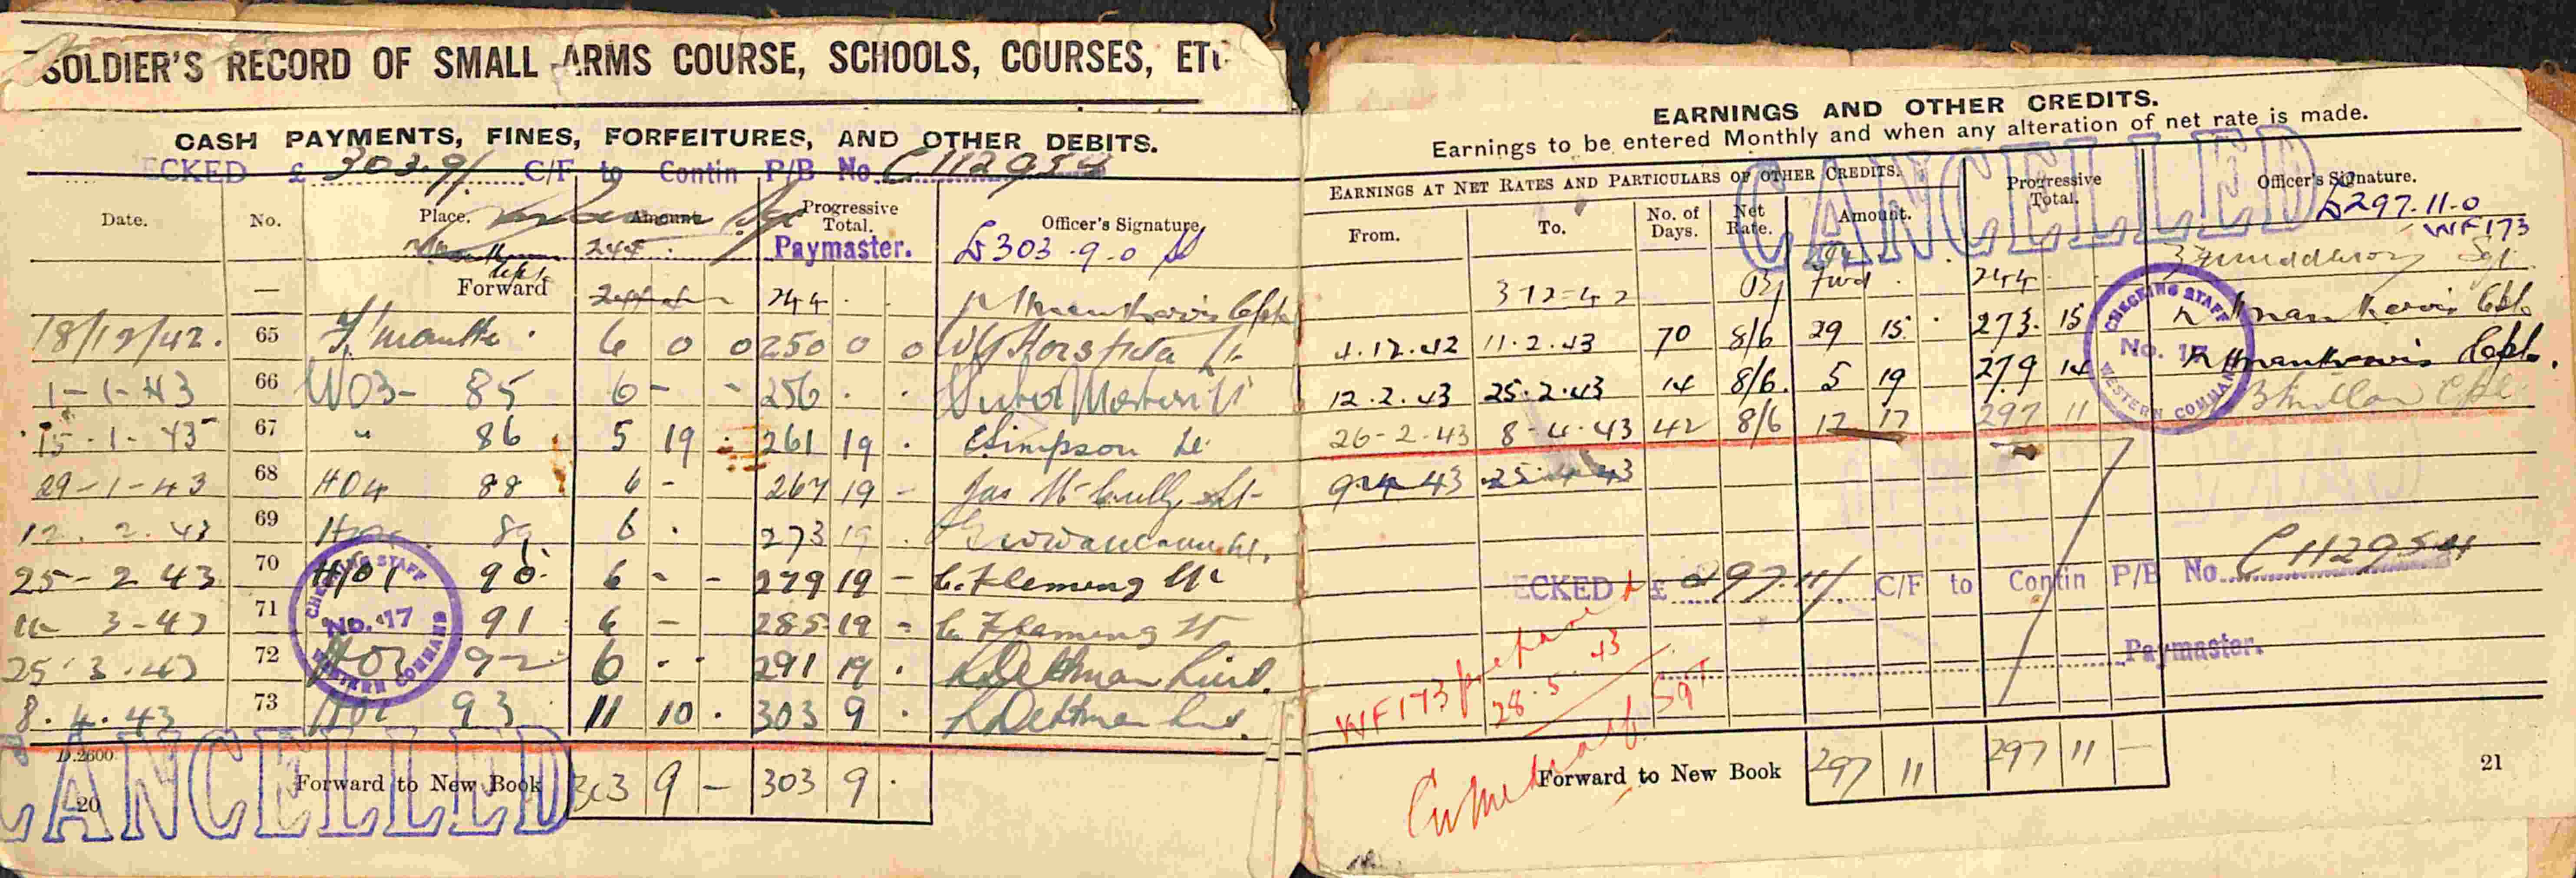 SOLDIER'S RECORD OF SMALL ARMS COURSE, SCHOOLS, COURSES, ETC
CASH PAYMENTS, FINES, FORFEITURES, AND OTHER DEBITS.
ECKED £ 303.9/. C/F to Contin P/B No. C112954
Date. No. Place. Amount Progressive Total. Officer's Signature
Paymaster. £303.9.0
Forward 244
18/12/42. 65 F'mantle. 6 0 0 250 0 0
1-1-43 66 W03- 85 6 - - 256 . .
15-1-43 67 " 86 5 19 . 261 19 . Simpson Lt.
29-1-43 68 H04 88 6 - 267 19 - Jas
12.2.43 69 89 6 . 273 19 .
25-2 43 70 H01 90. 6 - - 279 19 - C. Fleming Lt
11- 3-43 71 91 6 - 285 19 - C. Fleming Lt
25.3.43 72 H01 92 6 . . 291 19 . Dettman Lieut.
8.4.43 73 H01 93 11 10 . 303 9 . Dettman Lieut.
CHECKING STAFF
No. 17
WESTERN COMMAND
CANCELLED
D.2600
Forward to New Book 303 9 - 303 9 .
20
EARNINGS AND OTHER CREDITS.
Earnings to be entered Monthly and when any alteration of net rate is made.
CANCELLED
EARNINGS AT NET RATES AND PARTICULARS OF OTHER CREDITS. Progressive Total. Officer's Signature.
From. To. No. of Days. Net Rate. Amount.
£297.11.0
WF173
3 12=42 fwd 244 Sgt.
4.12.42 11.2.43 70 8/6 29 15 . 273. 15 Cpl.
12.2.43 25.2.43 14 8/6. 5 19 279 14 Cpl.
26-2-43 8-4-43 42 8/6 17 17 297 11
9-4 43 25 4 43
CHECKING STAFF
No. 17
WESTERN COMMAND
ECKED £ 297.11/ C/F to Contin P/B No. C112954
Paymaster.
WF173
28.5.43
Sgt
Forward to New Book 297 11 297 11 —
21